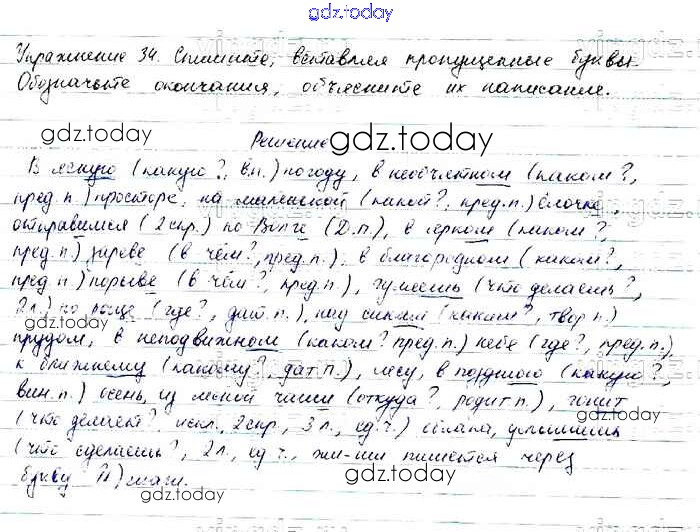 gdz.today
Упражнение 34. Спишите, вставляя пропущенные буквы.
Обозначьте окончания, объясните их написание.
gdz.today
Решение gdz.today
В ясную (какую?, в.п.) погоду, в необъятном (каком?,
пред.п.) просторе, на маленькой (какой?, пред.п.) ёлочке,
отправимся (2 спр.) по Волге (Д.п.), в ярком (каком?,
пред.п.) зареве (в чём?, пред.п.), в благородном (каком?,
пред.п.) порыве (в чём?, пред.п.), думаешь (что делаешь?,
2л.) по роще (где?, дат.п.), над синим (каким?, твор п.)
gdz.today
прудом, в неподвижном (каком? пред.п.) небе (где?, пред.п.)
к ближнему (какому?, дат.п.), лесу, в позднюю (какую?,
вин.п.) осень, из лесной чащи (откуда?, родит п.), гонит
(что делает?, искл., 2спр., 3л., ед.ч.) облака, услышишь
(что сделаешь?, 2л., ед ч., жи-ши пишется через
букву И) шаги.
gdz.today
gdz.today